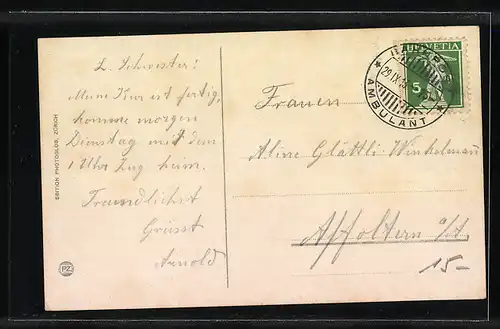 L. Schwester!
Mein Kur ist fertig,
komme morgen
Dienstag mit dem
1 Uhr Zug heim.
Freundlichst
Grüsst
Arnold
EDITION PHOTOGLOB, ZÜRICH
PZ
HELVETIA
5
29.IX
AMBULANT
Frauen
Aline Glättli-Winkelmann
Affoltern a/A.
15-